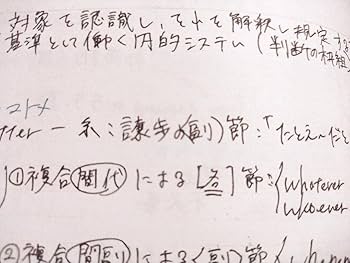 対象を認識し、それを解釈し規定する
基準として働く内的システム（判断の枠組
コトメ
tter ー系：譲歩の副）節：「たとえ〜だと
①複合関代による[名]節：{whatever
whoever
②複合関副による〈副〉節{whenev